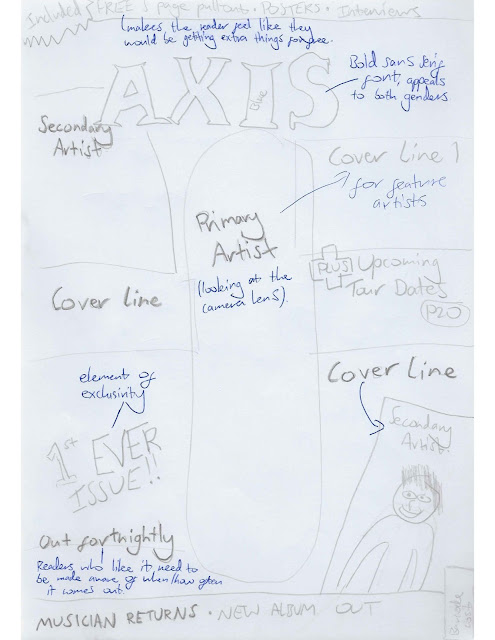 Included FREE 5 page pullout • POSTERS • Interviews
(makes the reader feel like they
would be getting extra things for free.
AXIS
Blue
Bold sans serif
font, appeals
to both genders.
Secondary
Artist
Cover Line 1
for feature
artists
Primary
Artist
(looking at the
camera lens).
PLUS Upcoming
Tour Dates
P20
Cover line
Cover line
element of
exclusivity
Secondary
Artist
1st EVER
ISSUE!!
Out fortnightly
Readers who like it need to
be made aware of when/how often
it comes out.
MUSICIAN RETURNS • NEW ALBUM OUT
Barcode
cost